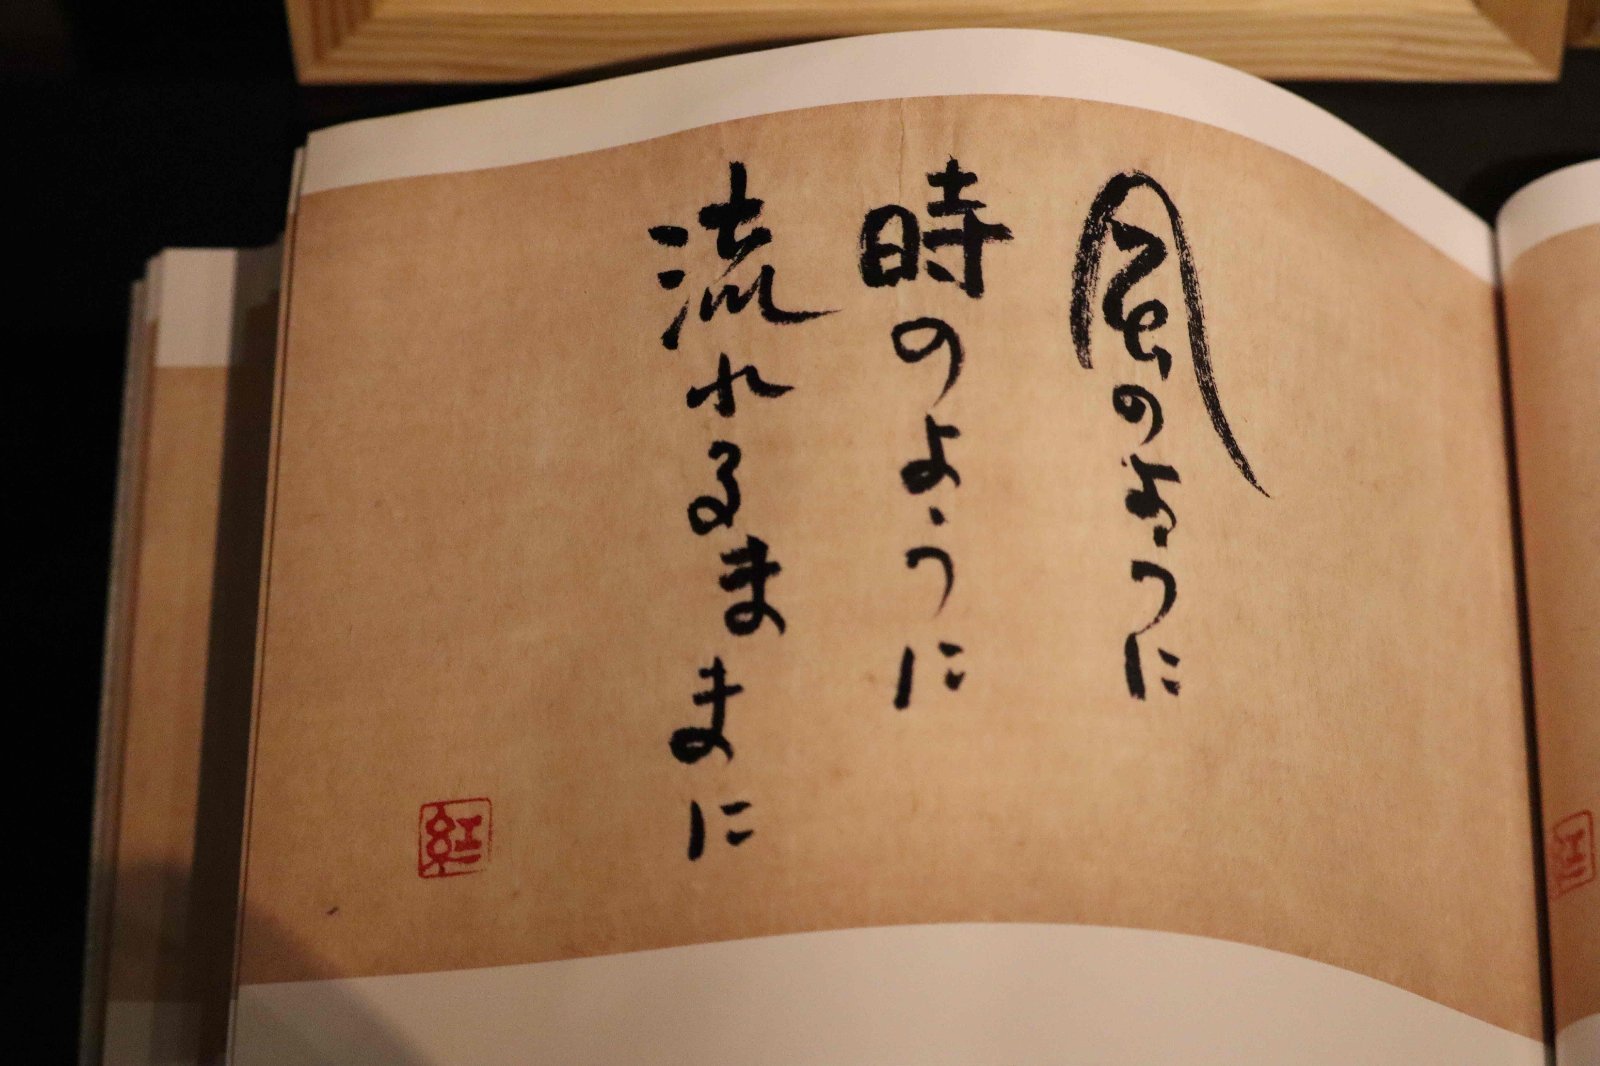 風のように
時のように
流れるままに
紅